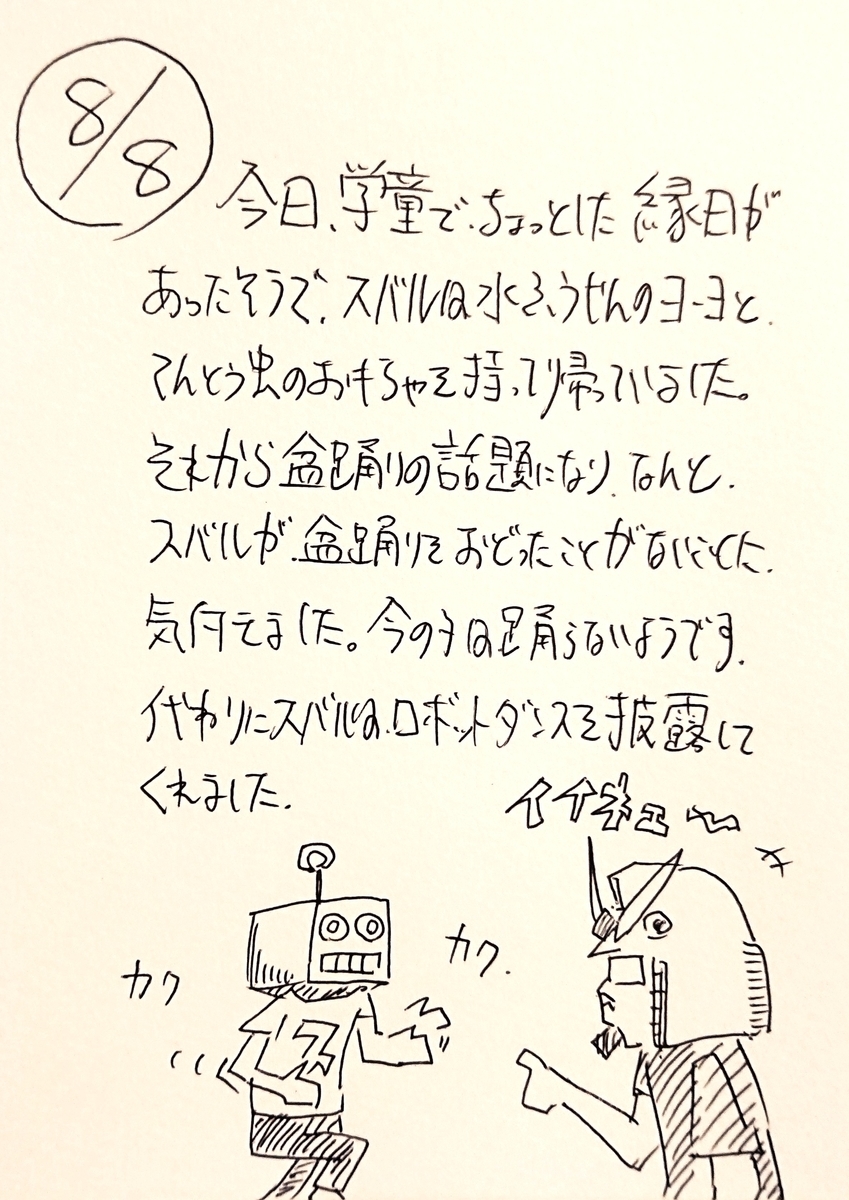 8/8
今日、学童で、ちょっとした縁日が
あったそうで、スバルは水ふうせんのヨーヨと、
てんとう虫のおもちゃを持って帰っていました。
それから盆踊りの話題になり、なんと、
スバルが、盆踊りをおどったことがないことに、
気付きました。今の子は踊らないようです。
代わりにスバルは、ロボットダンスを披露して
くれました。
イイネェ〜
カク
カク
ス